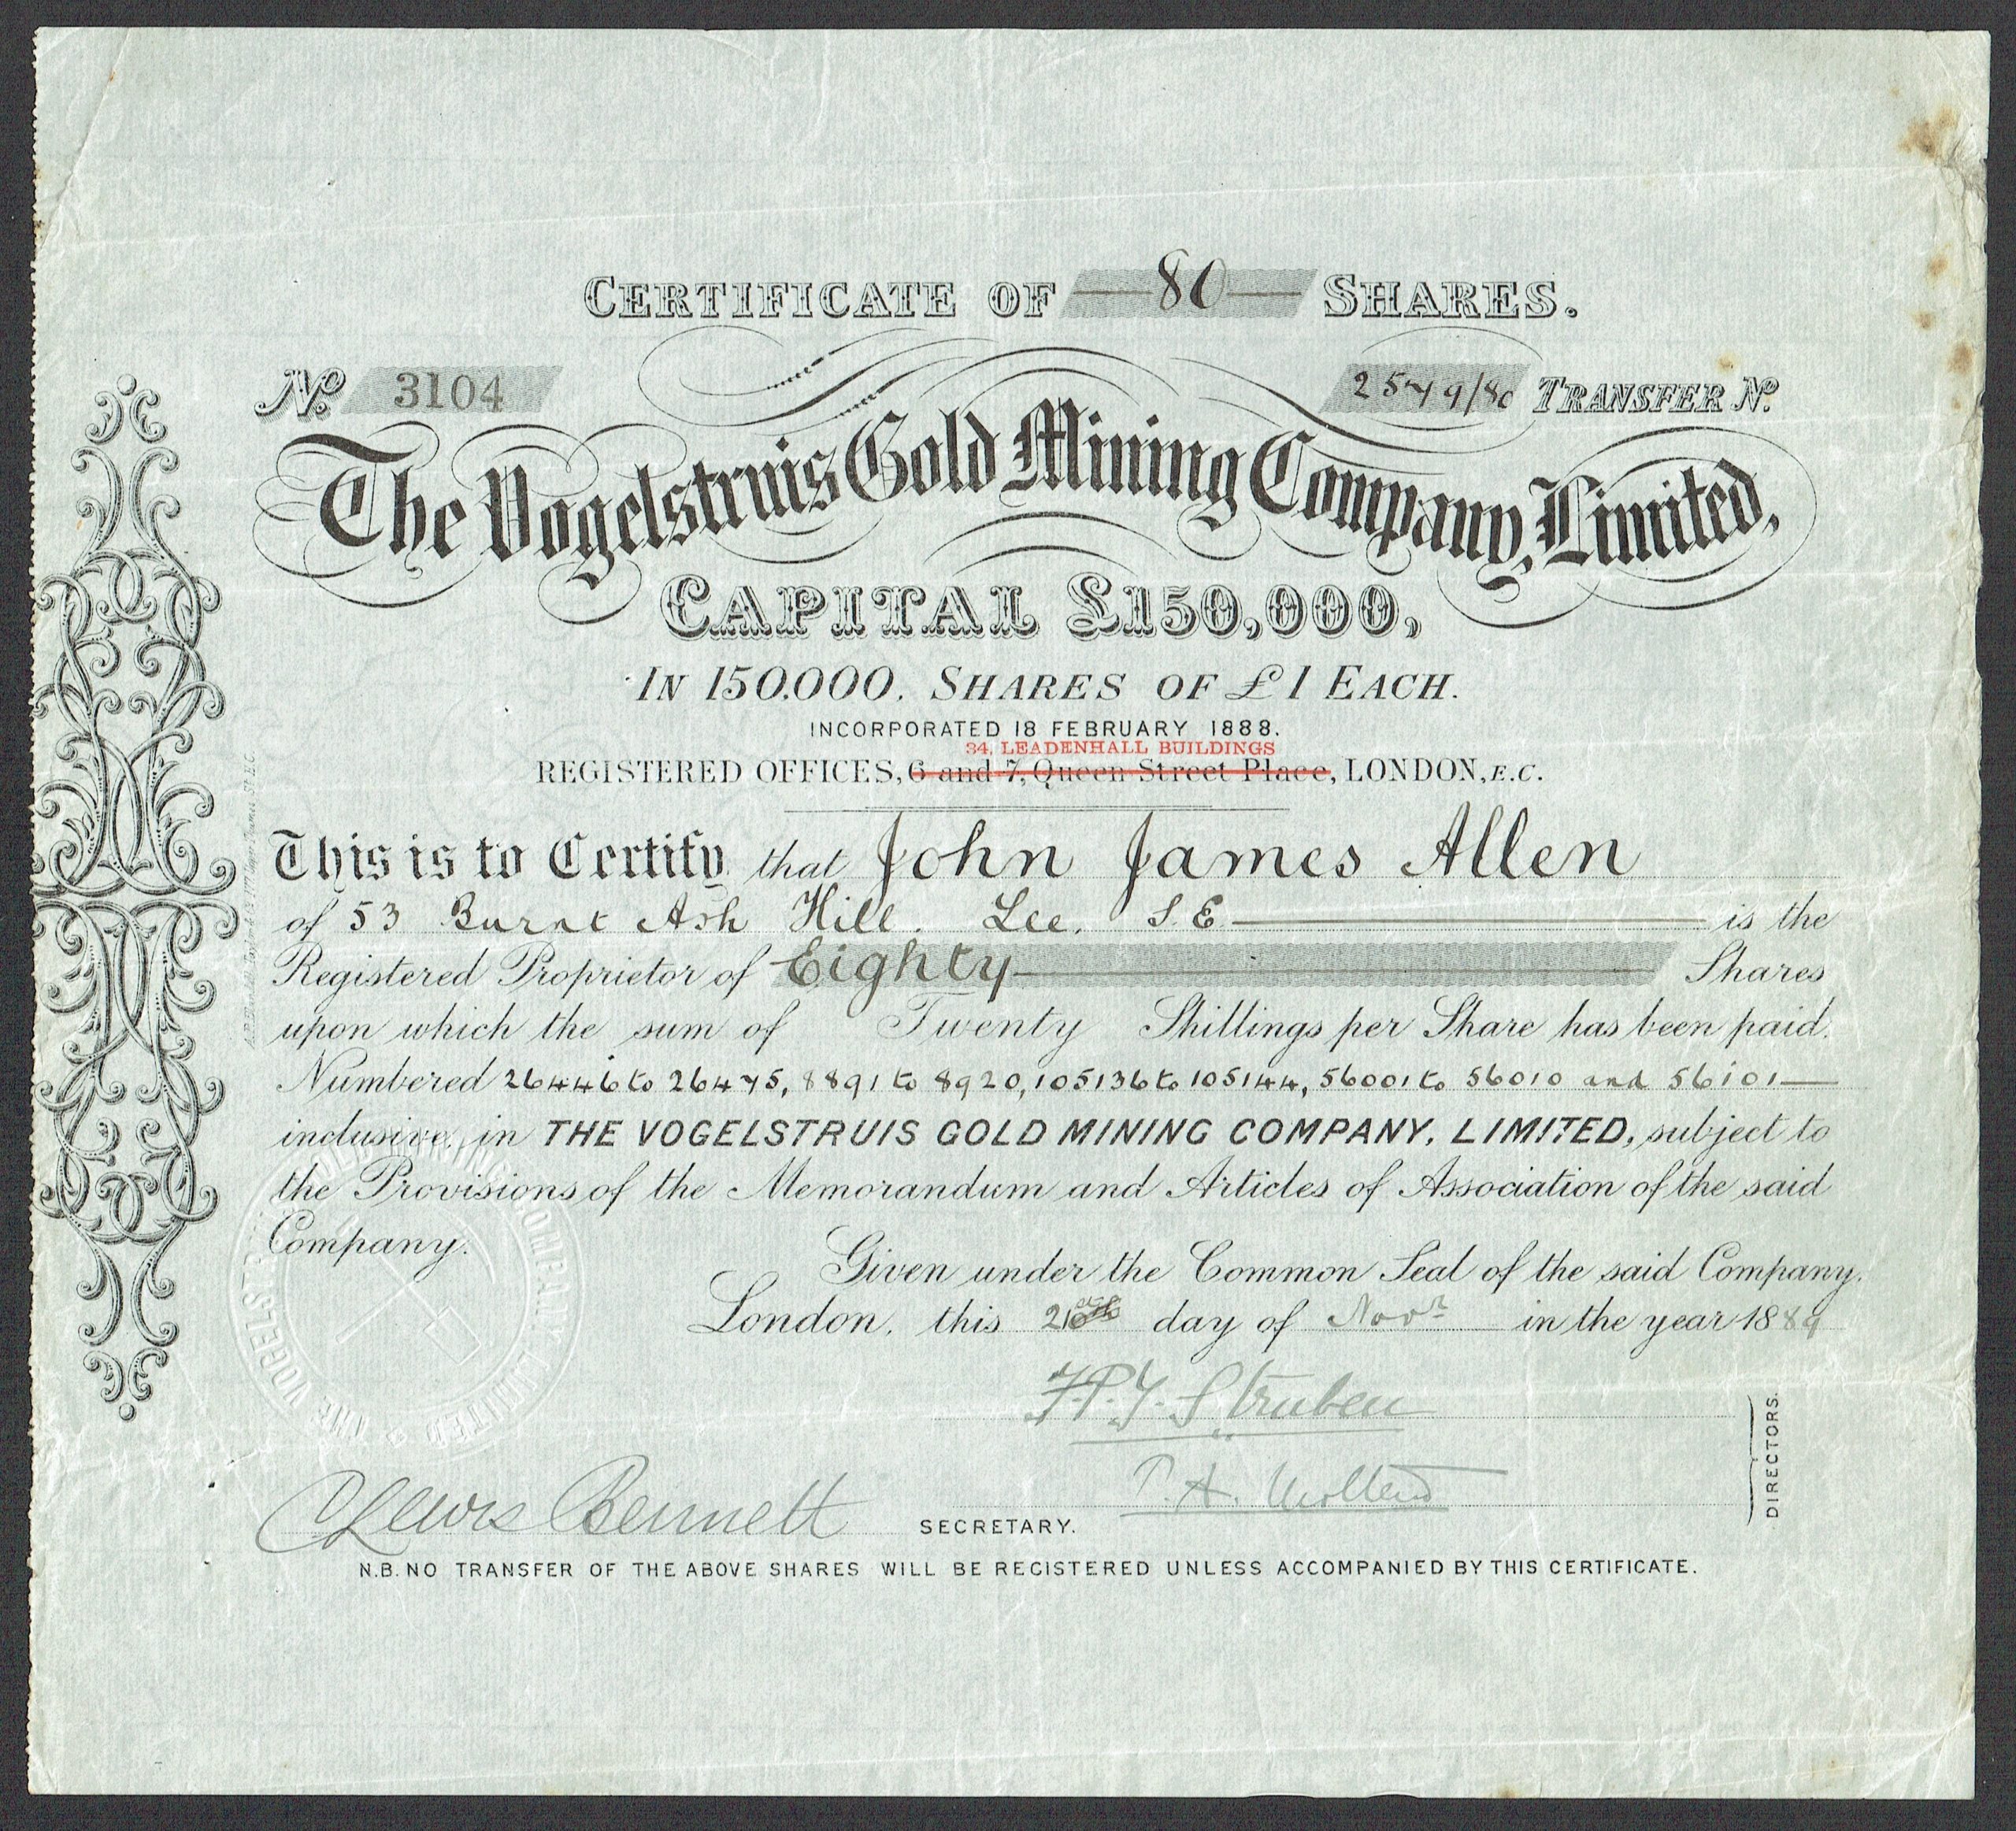 CERTIFICATE OF 80 SHARES.
No. 3104
2579/80 TRANSFER No.
The Vogelstruis Gold Mining Company, Limited,
CAPITAL £150,000,
IN 150,000, SHARES OF £1 EACH.
INCORPORATED 18 FEBRUARY 1888.
34, LEADENHALL BUILDINGS
REGISTERED OFFICES, 6 and 7, Queen Street Place, LONDON, E.C.
This is to Certify that John James Allen
of 53 Burnt Ash Hill. Lee. S.E. is the
Registered Proprietor of Eighty Shares
upon which the sum of Twenty Shillings per Share has been paid.
Numbered 26446 to 26475, 8891 to 8920, 105136 to 105144, 56001 to 56010 and 56101
inclusive, in THE VOGELSTRUIS GOLD MINING COMPANY, LIMITED, subject to
the Provisions of the Memorandum and Articles of Association of the said
Company.
Given under the Common Seal of the said Company.
London, this 21st day of Novr. in the year 1889
F.P.T. Struben
P. A. Molteno
DIRECTORS.
Lewis Bennett
SECRETARY.
N.B. NO TRANSFER OF THE ABOVE SHARES WILL BE REGISTERED UNLESS ACCOMPANIED BY THIS CERTIFICATE.
THE VOGELSTRUIS GOLD MINING COMPANY LIMITED